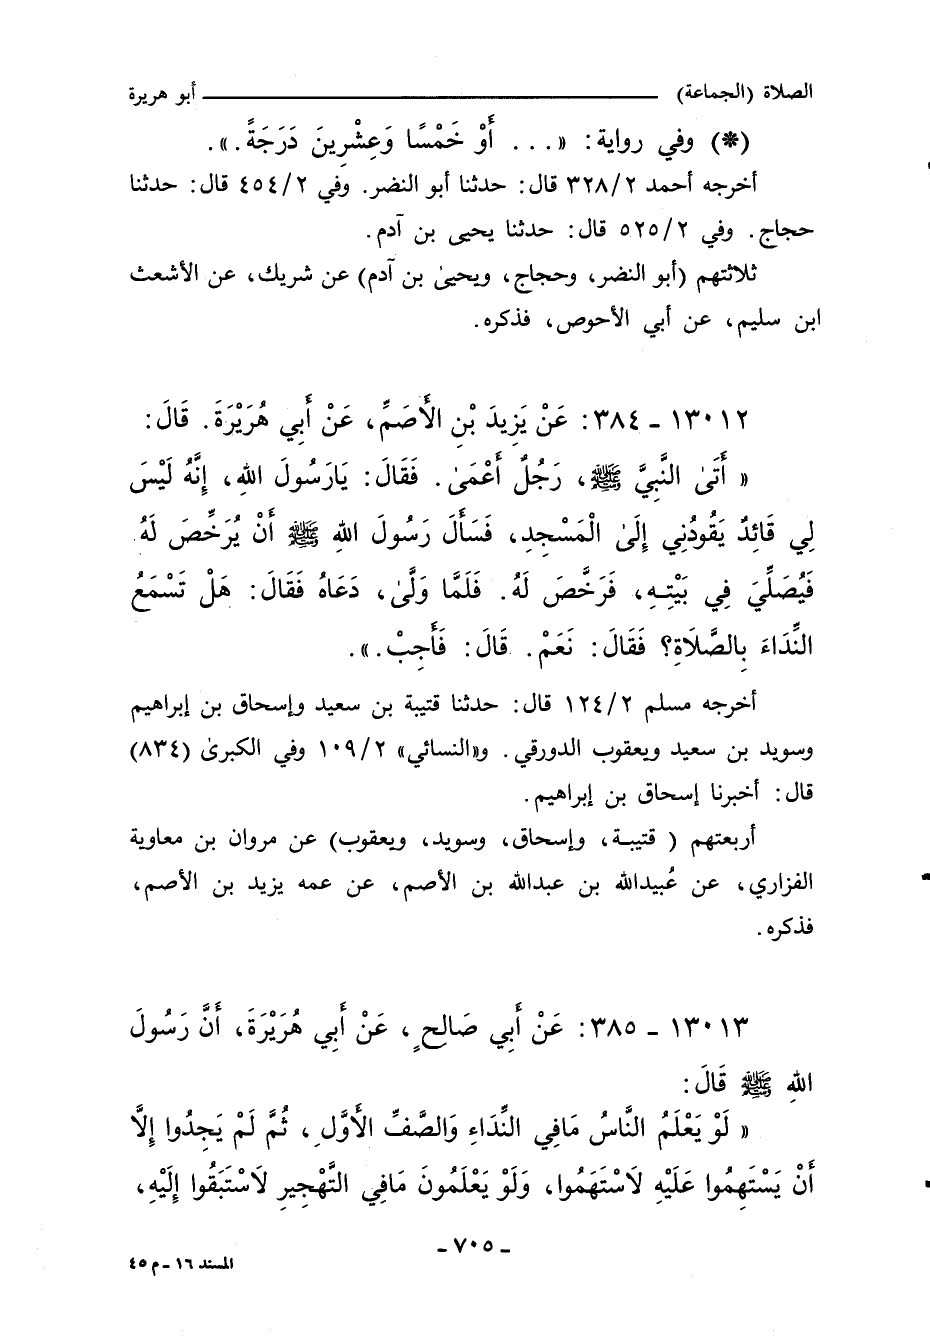 الصلاة (الجماعة) ـــــــــــــــــــــ أبو هريرة
(*) وفي رواية: « . . . أَوْ خَمْسًا وَعِشْرِينَ دَرَجَةً. ».
أخرجه أحمد ٣٢٨/٢ قال: حدثنا أبو النضر. وفي ٤٥٤/٢ قال: حدثنا
حجاج. وفي ٥٢٥/٢ قال: حدثنا يحيى بن آدم.
ثلاثتهم (أبو النضر، وحجاج، ويحيىٰ بن آدم) عن شريك، عن الأشعث
ابن سليم، عن أبي الأحوص، فذكره.
١٣٠١٢ - ٣٨٤: عَنْ يَزِيدَ بْنِ الأَصَمِّ، عَنْ أَبِي هُرَيْرَةَ. قَالَ:
« أَتَىٰ النَّبِيَّ ﷺ، رَجُلٌ أَعْمَىٰ. فَقَالَ: يَارَسُولَ اللهِ، إِنَّهُ لَيْسَ
لِي قَائِدٌ يَقُودُنِي إِلَىٰ الْمَسْجِدِ، فَسَأَلَ رَسُولَ اللهِ ﷺ أَنْ يُرَخِّصَ لَهُ
فَيُصَلِّيَ فِي بَيْتِهِ، فَرَخَّصَ لَهُ. فَلَمَّا وَلَّىٰ، دَعَاهُ فَقَالَ: هَلْ تَسْمَعُ
النِّدَاءَ بِالصَّلَاةِ؟ فَقَالَ: نَعَمْ. قَالَ: فَأَجِبْ. ».
أخرجه مسلم ١٢٤/٢ قال: حدثنا قتيبة بن سعيد وإسحاق بن إبراهيم
وسويد بن سعيد ويعقوب الدورقي. و«النسائي» ١٠٩/٢ وفي الكبرىٰ (٨٣٤)
قال: أخبرنا إسحاق بن إبراهيم.
أربعتهم ( قتيبة، وإسحاق، وسويد، ويعقوب) عن مروان بن معاوية
الفزاري، عن عُبيدالله بن عبدالله بن الأصم، عن عمه يزيد بن الأصم،
فذكره.
١٣٠١٣ - ٣٨٥: عَنْ أَبِي صَالِحٍ، عَنْ أَبِي هُرَيْرَةَ، أَنَّ رَسُولَ
اللهِ ﷺ قَالَ:
« لَوْ يَعْلَمُ النَّاسُ مَافِي النِّدَاءِ وَالصَّفِّ الأَوَّلِ، ثُمَّ لَمْ يَجِدُوا إِلَّا
أَنْ يَسْتَهِمُوا عَلَيْهِ لَاسْتَهَمُوا، وَلَوْ يَعْلَمُونَ مَافِي التَّهْجِيرِ لَاسْتَبَقُوا إِلَيْهِ،
- ٧٠٥ -
المسند ١٦ - م ٤٥